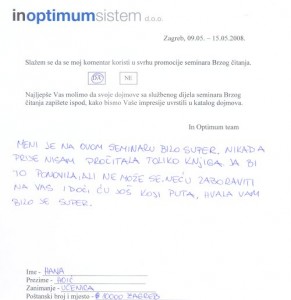 inoptimumsistem d.o.o.
Zagreb, 09.05. – 15.05.2008.
Slažem se da se moj komentar koristi u svrhu promocije seminara Brzog čitanja.
DA NE
Najljepše Vas molimo da svoje dojmove sa službenog dijela seminara Brzog
čitanja zapišete ispod, kako bismo Vaše impresije uvrstili u katalog dojmova.
In Optimum team
MENI JE NA OVOM SEMINARU BILO SUPER. NIKADA
PRIJE NISAM PROČITALA TOLIKO KNJIGA. JA BI
TO PONOVILA, ALI NE MOŽE SE. NEĆU ZABORAVITI
NA VAS I DOĆI ĆU JOŠ KOJI PUTA, HVALA VAM
BILO JE SUPER.
Ime - HANA
Prezime -
Zanimanje - UČENICA
Poštanski broj i mjesto - 10000 ZAGREB